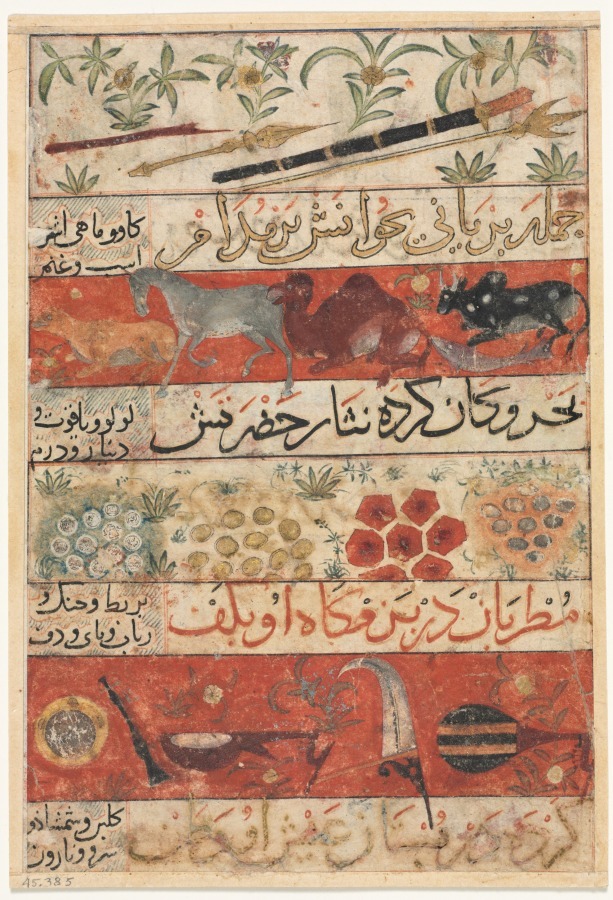 جمله بریانی بخوانش بر مدام از
کاو و ماهی اشتر
اسب و غنم
بحر و کان کرده نثار حضرتش
لولو و یاقوت و
دینار و درم
مطربان در بزمکاه او بکف
بربط و چنک و
رباب و نای و دف
کرده در بستان ز عیش او
کلبن و شمشاد و
سرو و نارون
45.385